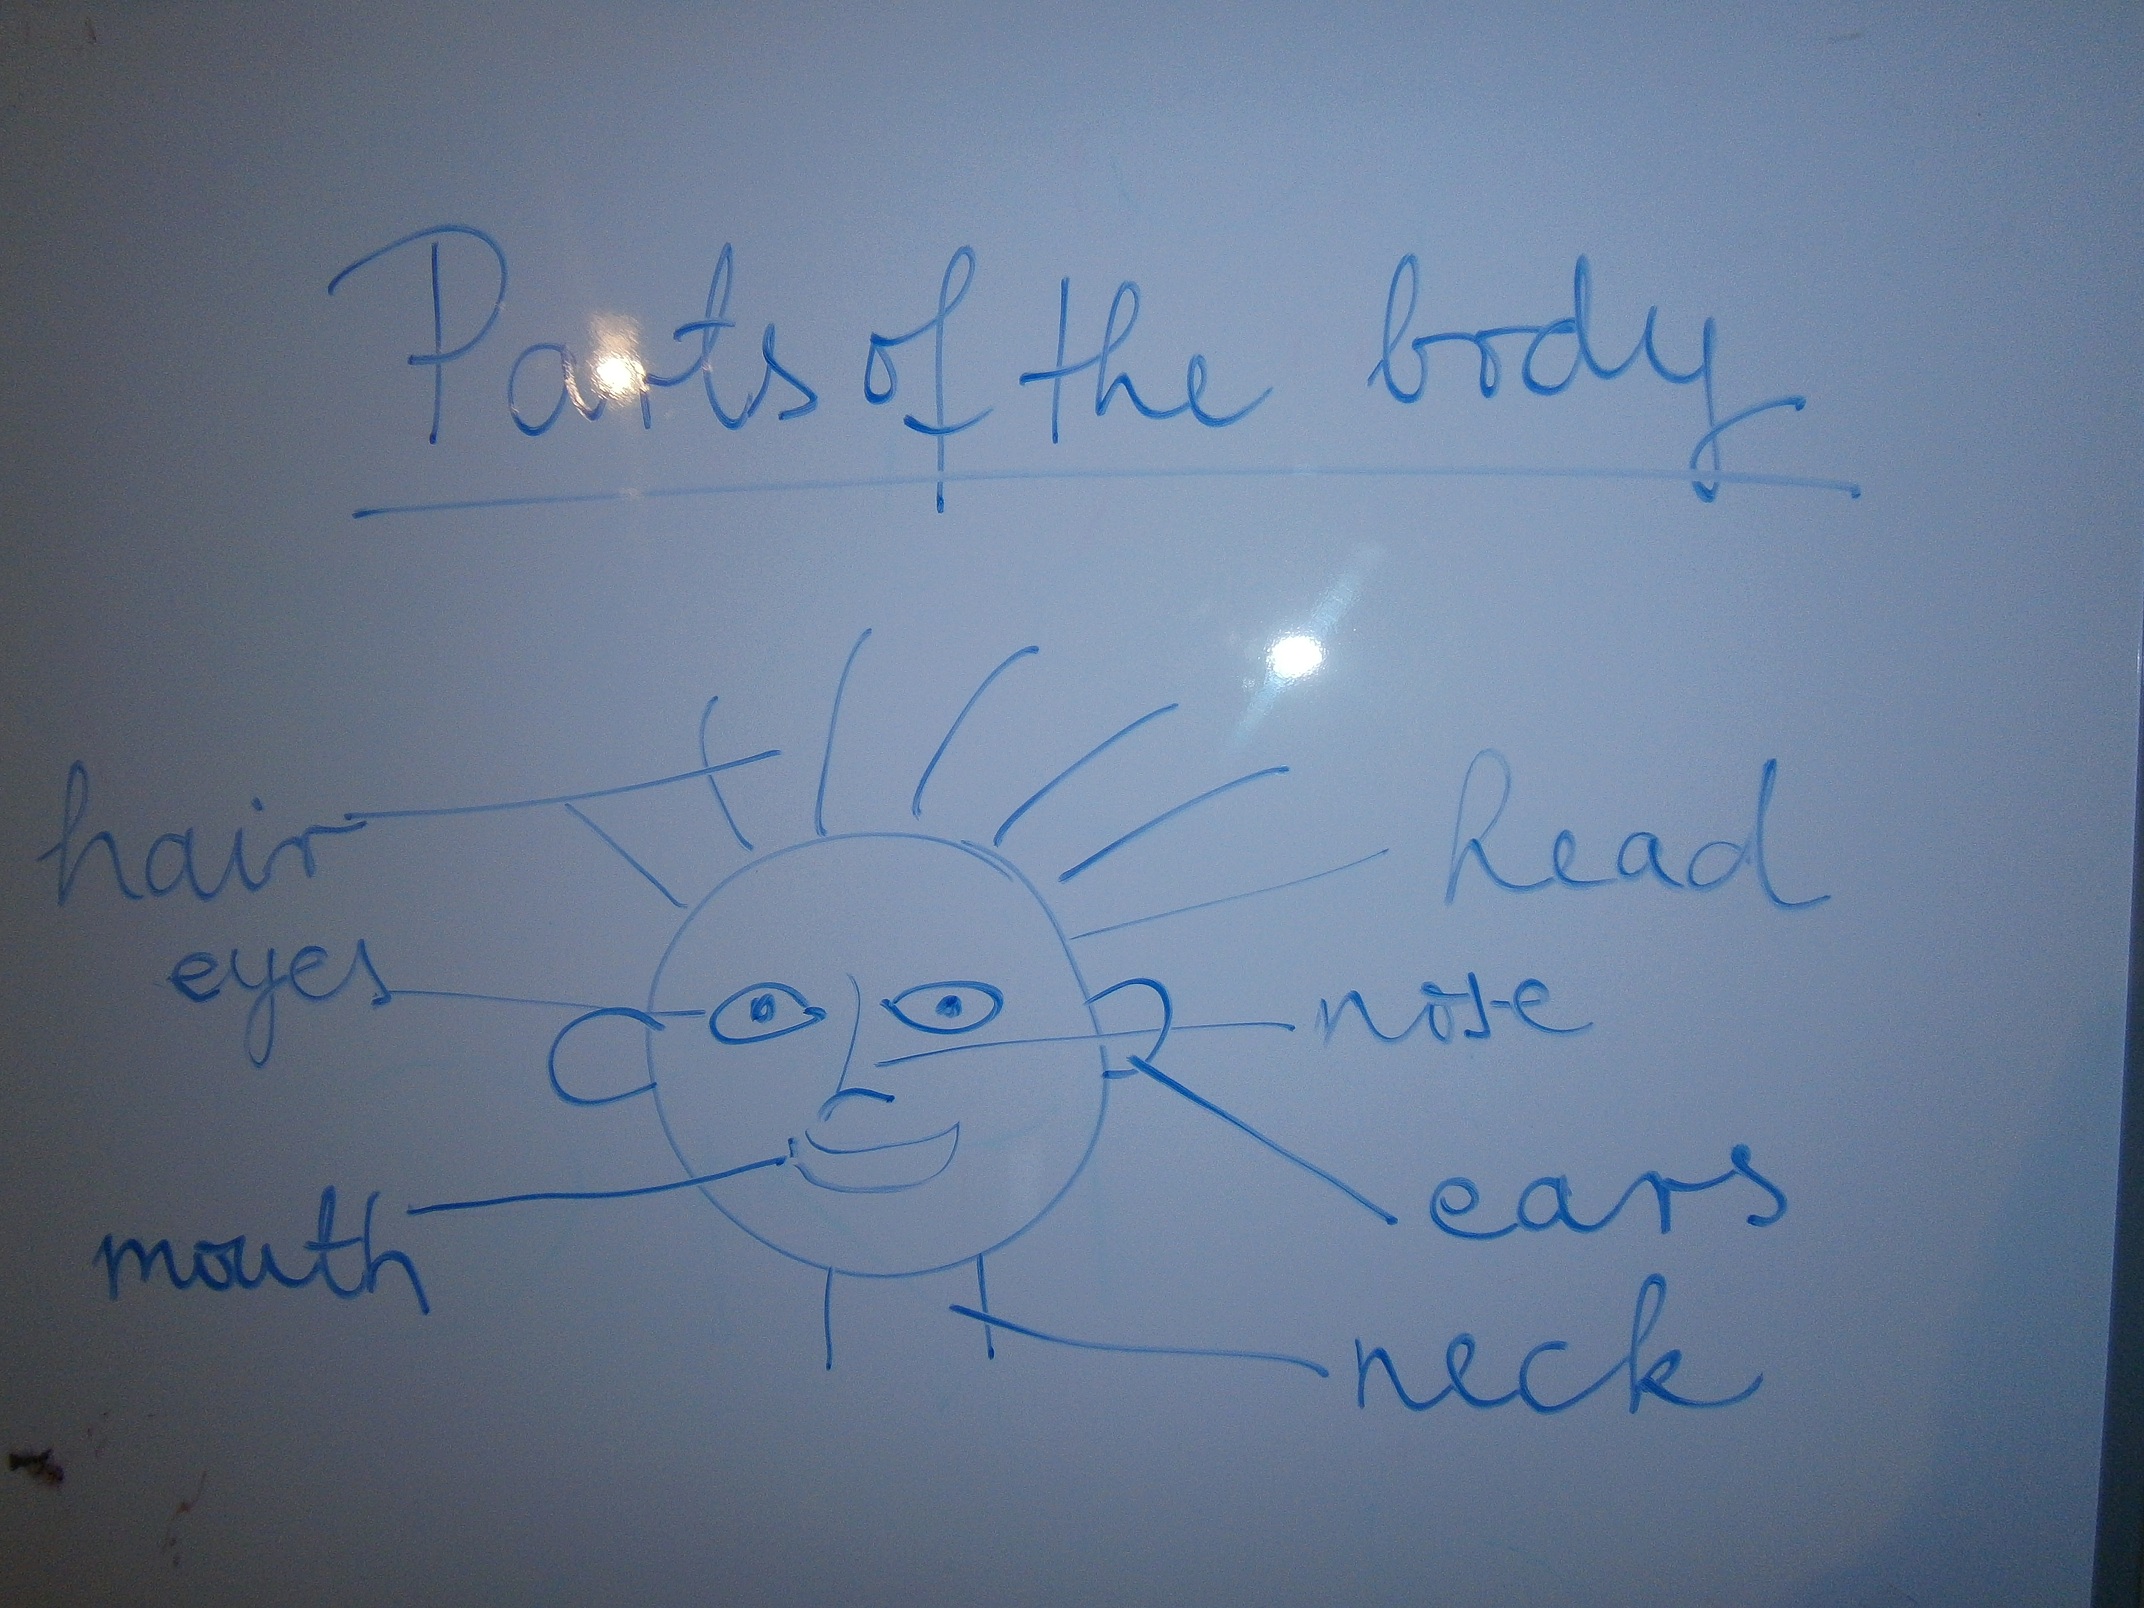 Parts of the body
hair
head
eyes
nose
mouth
ears
neck